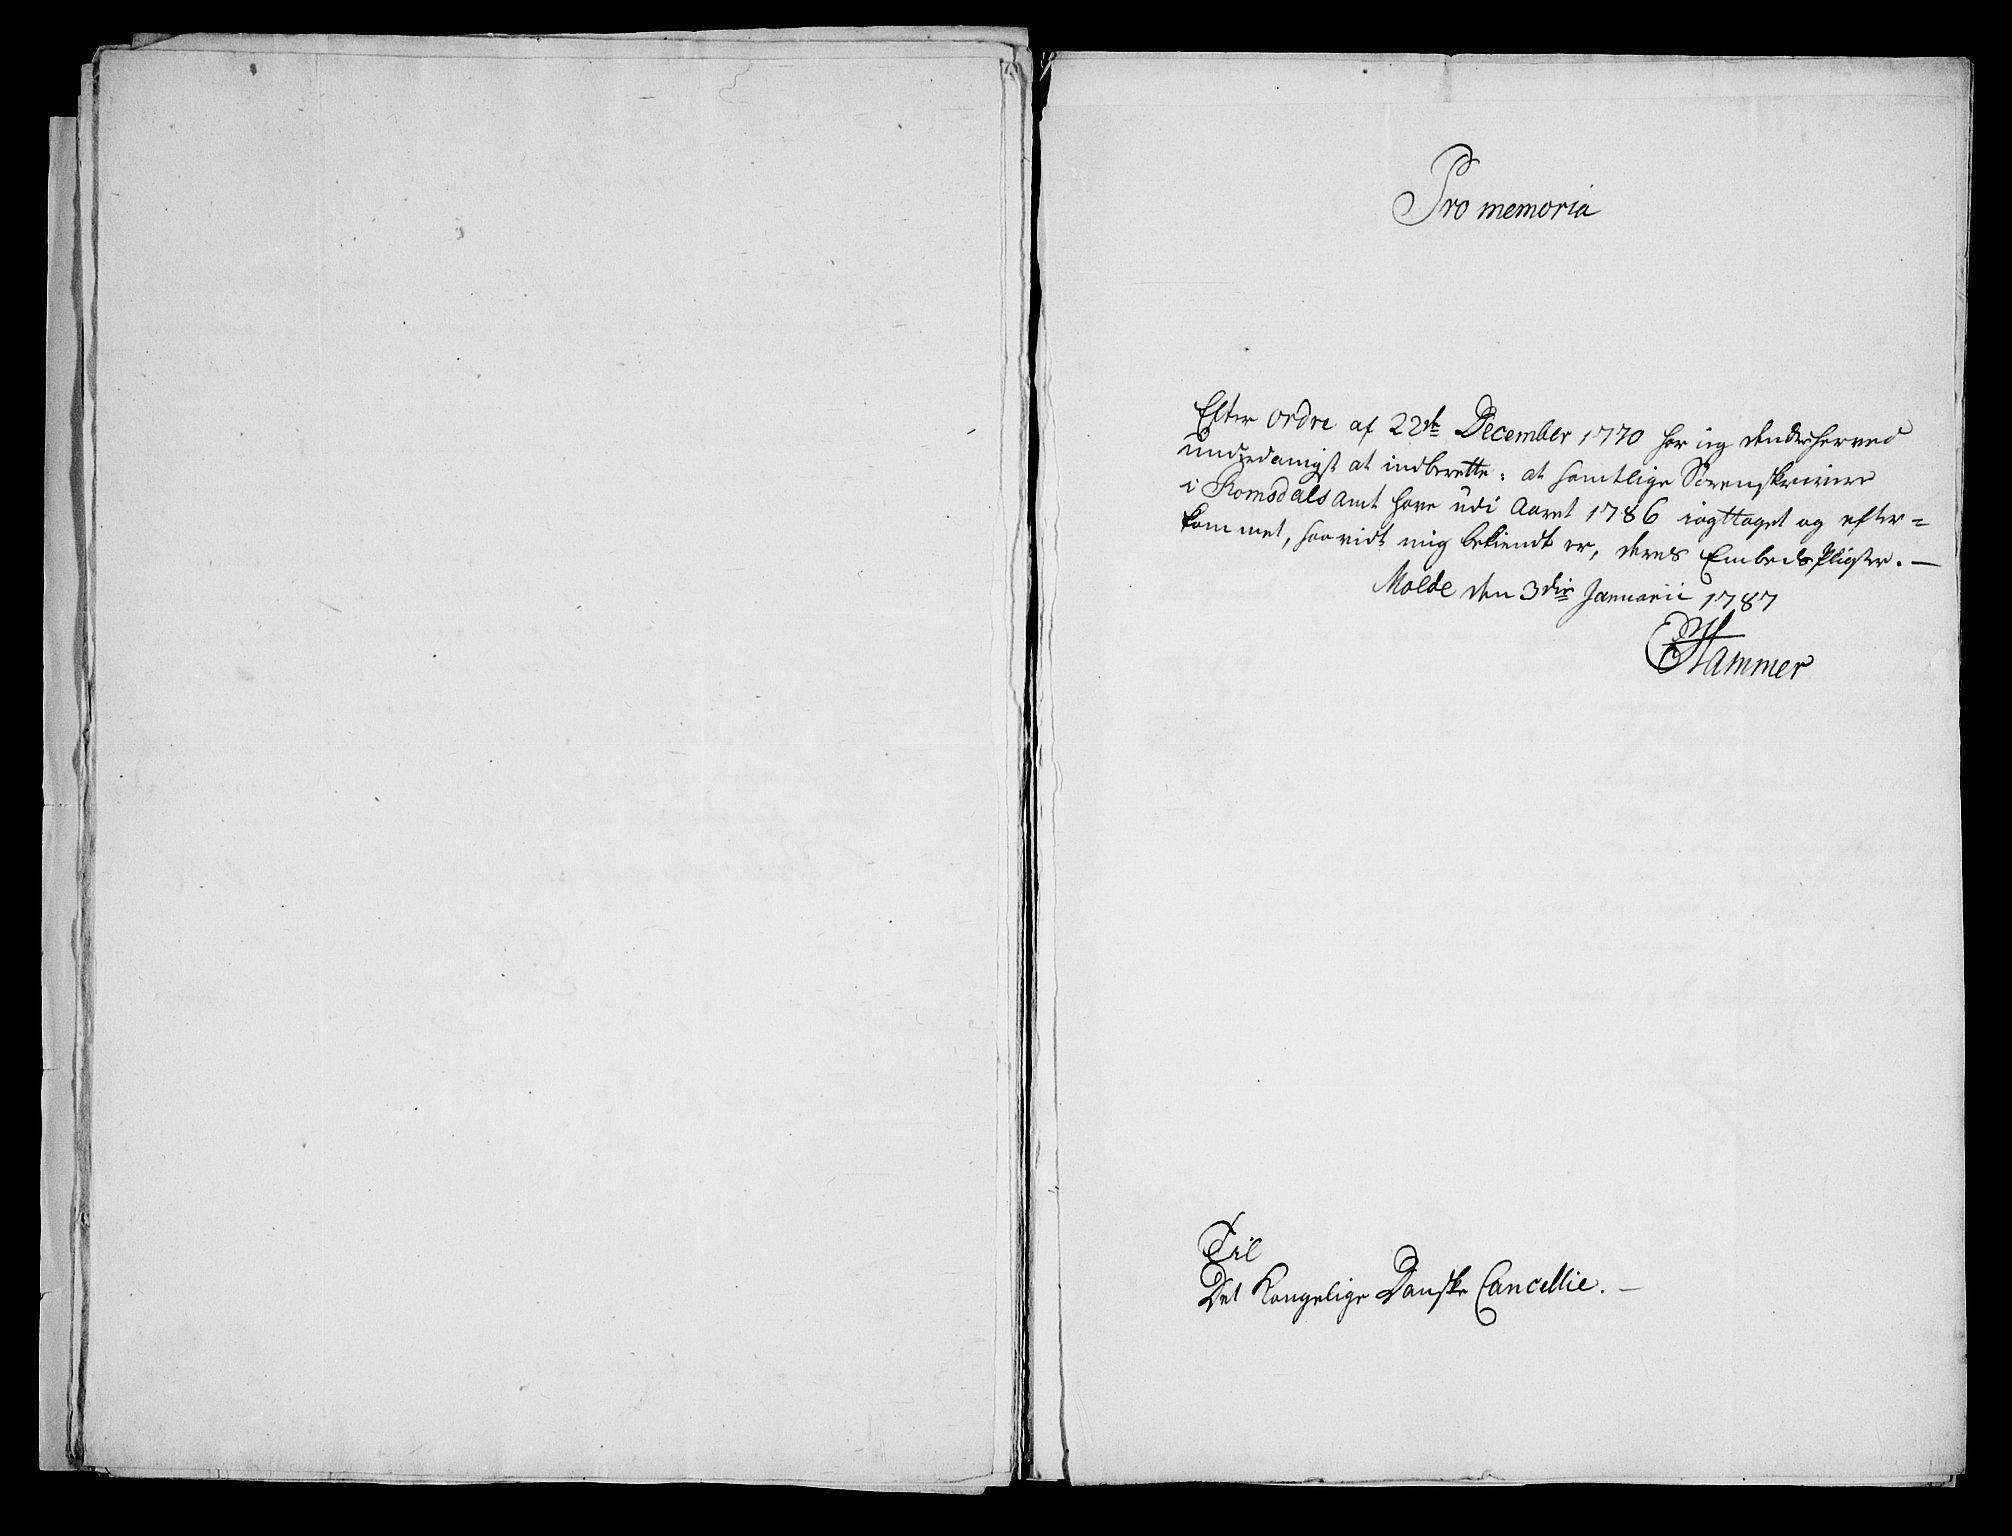 Pro memoria
Efter ordre af 22de December 1770 har ieg herved
underdanigst at indberette: at samtlige Sorenskrivere
i Romsdals amt have udi Aaret 1786 iagttaget og efter=
kommet, saavidt mig bekiendt er, deres Embeds Pligter. —
Molde den 3die Januarii 1787
Hammer
Til
Det Kongelige Danske Cancellie. —